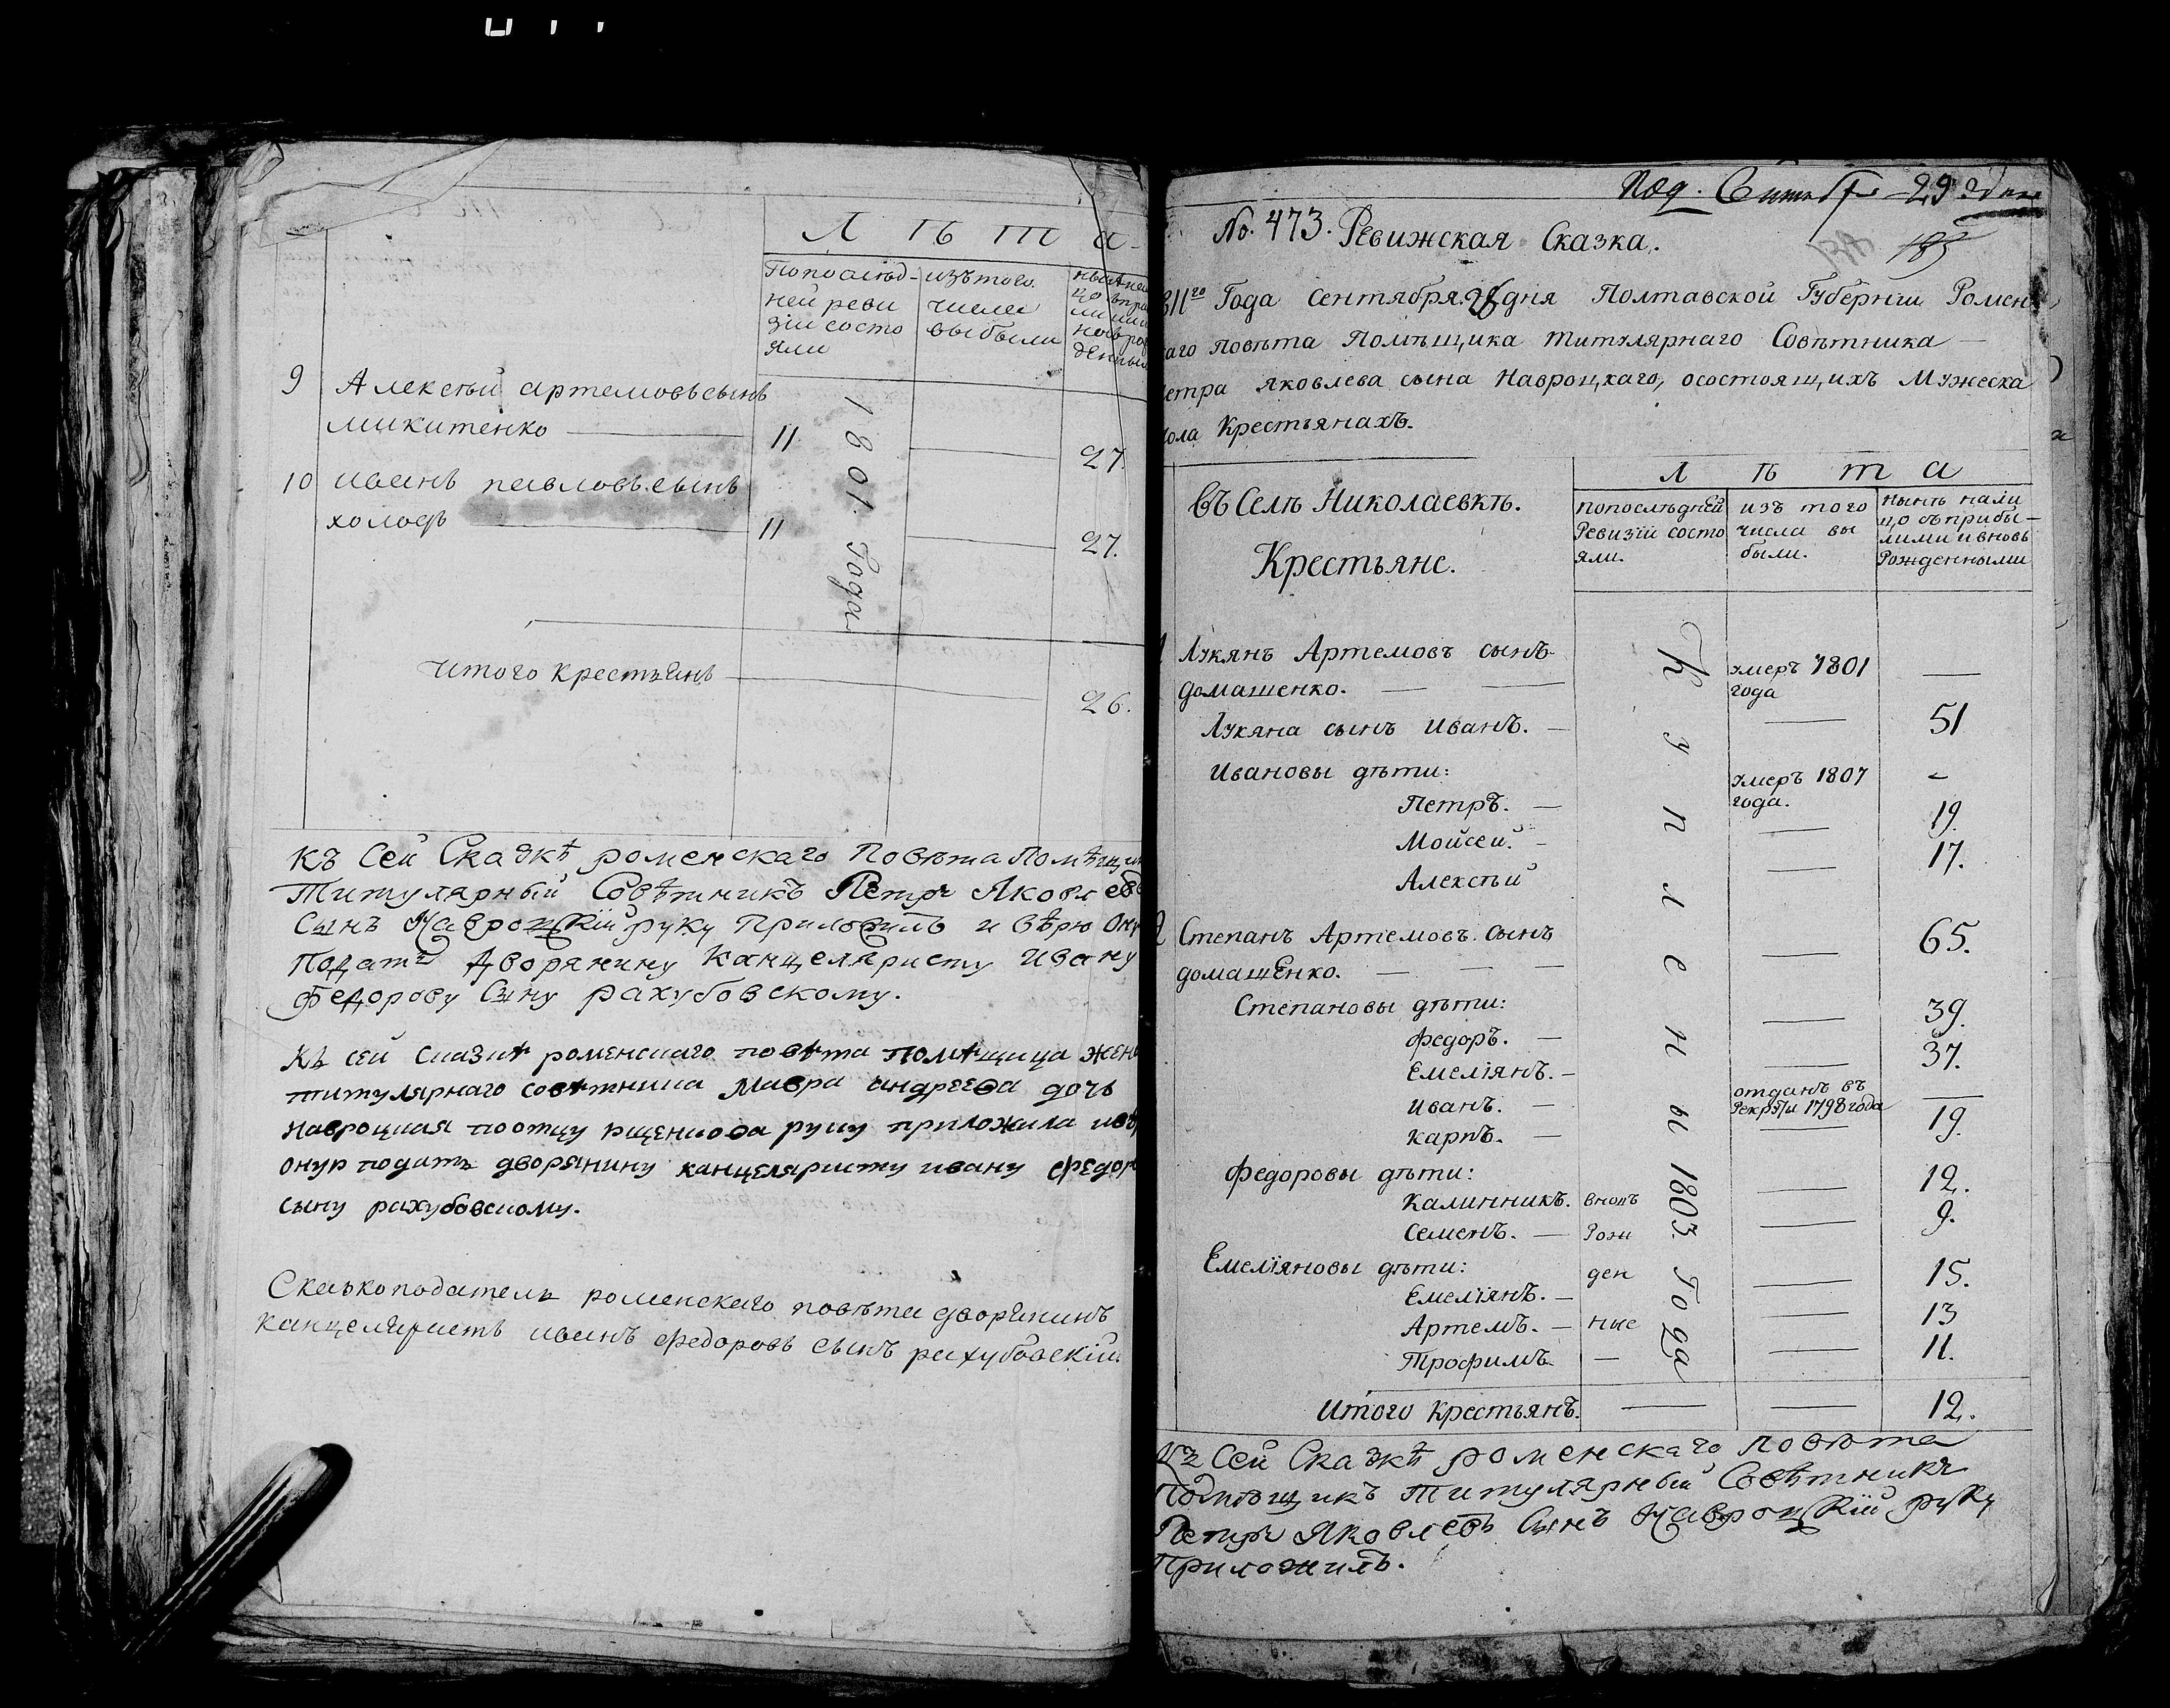 Л ѣ т а
Попослѣд-
ней реви
зіи состо
яли
изътого
числа
выбыли
9 Алексѣй артемовъ сынъ
микитенко 11 27.
10 иванъ павловъ сынъ
холодъ 11 27.
1801. Года
итого крестьянъ 26.
Къ Сей Сказкѣ роменскаго Повѣта
Титулярный Совѣтникъ Петръ Яковлевъ
Сынъ Навроцкій руку Приложилъ и вѣрю
Подать Дворянину Канцеляристу Ивану
Федорову Сыну рахубовскому.
Къ сей сказкѣ роменскаго повѣта помѣщица жена
титулярнаго совѣтника Мавра андреева дочь
Навроцкая поотцу руку приложила
оную подать дворянину канцеляристу ивану
сыну рахубовскому.
Сказкоподатель роменскаго повѣта дворянинъ
канцеляристъ иванъ федоровъ сынъ рахубовскій
Под. Сентябр 29 дня
No. 473. Ревижская Сказка.
185
811го Года Сентября дня Полтавской Губерніи Ромен
каго повѣта Помѣщика титулярнаго Совѣтника
етра яковлева сына Навроцкаго, осостоящихъ Мужеска
пола Крестьянахъ.
Л ѣ т а
въ Селѣ Николаевкѣ.
Крестьяне.
попослѣдней
Ревизіи состо
яли.
изъ того
числа вы
были.
нынѣ нали
цо съприбы-
лыми ивновь
Рожденными
1 Лукянъ Артемовъ сынъ
домашенко. умеръ 1801
года
Лукяна сынъ Иванъ. 51
Ивановы дѣти:
Петръ. умеръ 1807
года.
Мойсей. 19.
Алексѣй 17.
2 Степанъ Артемовъ сынъ
домашенко. 65.
Степановы дѣти:
федоръ. 39.
Емеліянъ. 37.
Иванъ. отданъ въ
Рекруты 1798 года
Карпъ. 19.
федоровы дѣти:
Калинникъ. вновь 12.
Семенъ. Рож 9.
Емеліяновы дѣти:
Емеліянъ. ден 15.
Артемъ. ные 13
Трофимъ. 11.
Куплены 1803. Года
Итого Крестьянъ. 12.
Къ Сей Сказкѣ роменскаго повѣта
Помѣщикъ Титулярный Совѣтникъ
Петръ Яковлевъ Сынъ Навроцкій руку
Приложилъ.